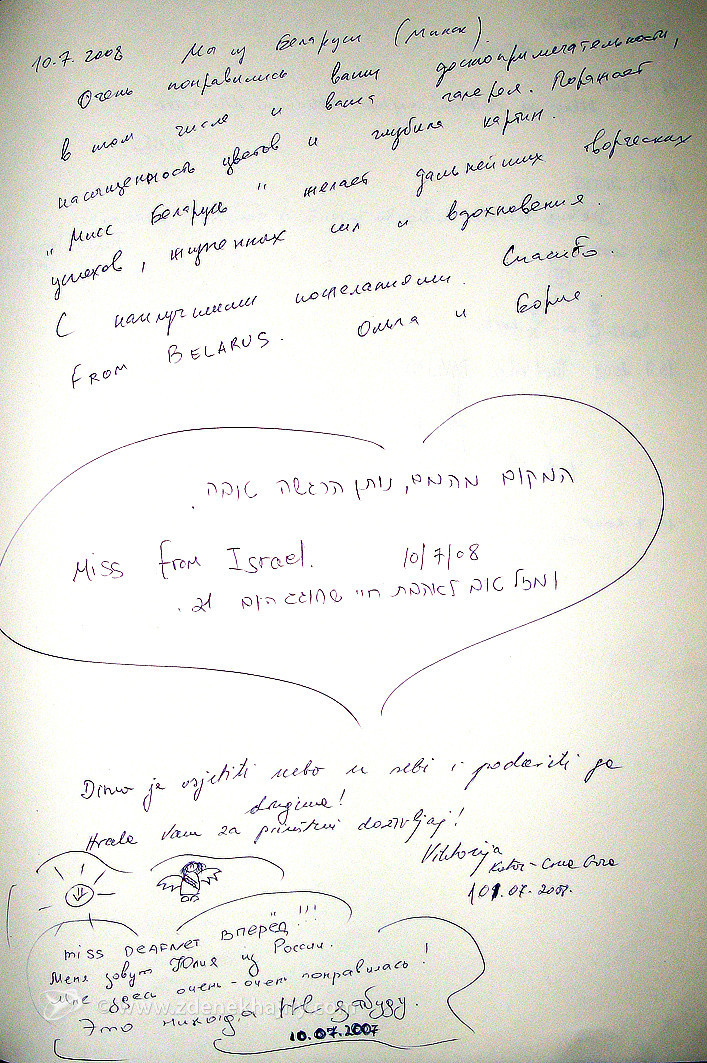 10.7.2008 Мы из Беларуси (Минск).
Очень понравились ваши достопримечательности,
в том числе и ваша галерея. Поражает
насыщенность цветов и глубина картин.
"Мисс Беларусь" желает дальнейших творческих
успехов, жизненных сил и вдохновения.
С наилучшими пожеланиями. Спасибо.
FROM BELARUS. Ольга и Борис.
המקום מהמם, נותן הרגשה טובה.
Miss from Israel. 10/7/08
ומזל טוב לאהבת חיי שחוגג היום 21.
Divno je osjetiti nebo u sebi i podariti ga
drugima!
Hvala Vam za predivni doživljaj!
Viktorija
Kotor - Crna Gora
10.07.2008.
miss DEAFNET вперёд!!!
Меня зовут Юлия из России.
Мне здесь очень-очень понравилась!
Это никогда не забуду.
10.07.2007
© www.zdenekhajny.com